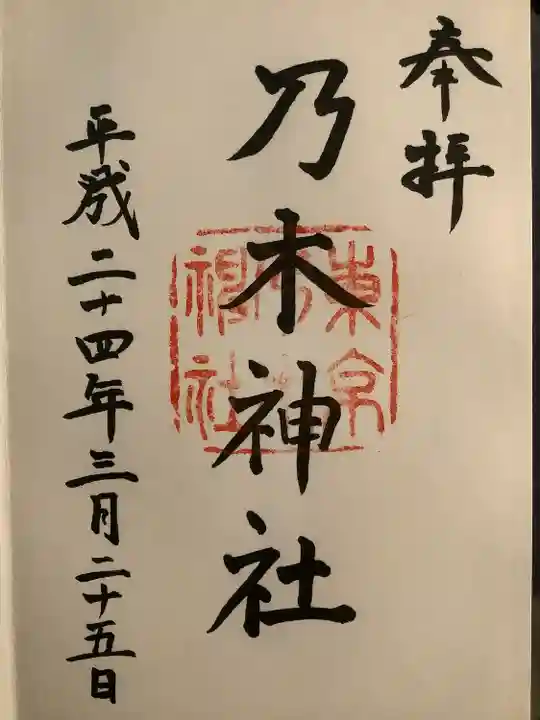 奉拝
乃木神社
平成二十四年三月二十五日
東京
乃木
神社